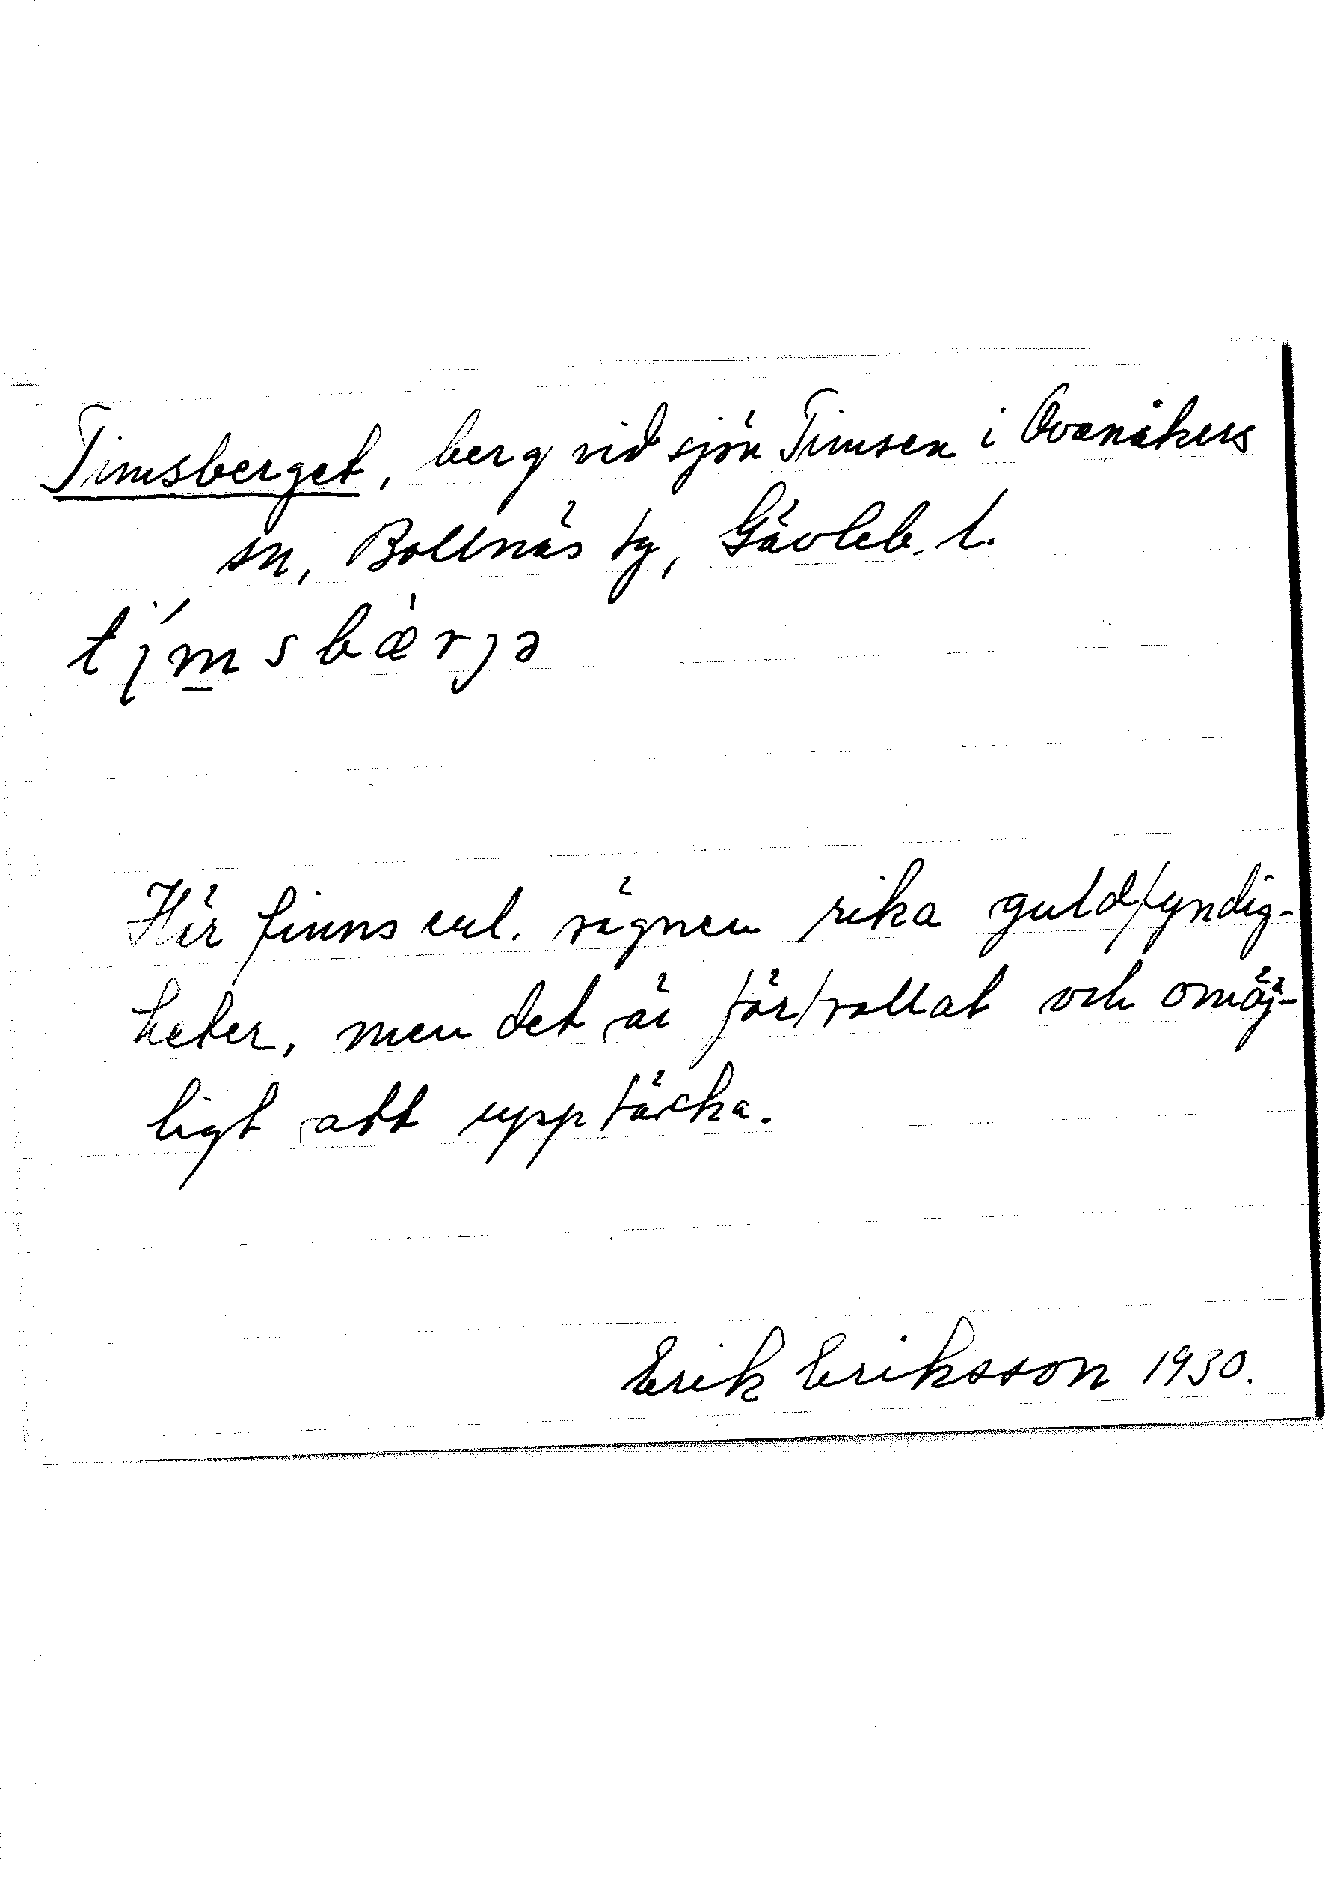 Timsberget, berg vid sjön Timsen i Ovanåkers
sn, Bollnäs tg, Gävleb. l.
tímsbæ̀rjə
Här finns enl. sägnen rika guldfyndig-
heter, men det är förtrollat och omöj-
ligt att upptäcka.
Erik Eriksson 1930.